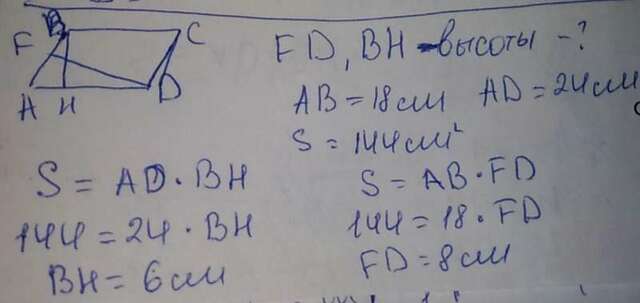 B
F
C
A H D
FD, BH - высоты - ?
AB = 18 см AD = 24 см
S = 144 см²
S = AD · BH
144 = 24 · BH
BH = 6 см
S = AB · FD
144 = 18 · FD
FD = 8 см